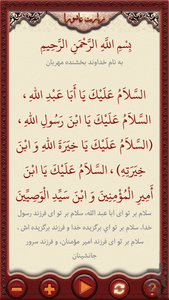 زیارت عاشورا
بِسْمِ اللَّهِ الرَّحْمَنِ الرَّحِيمِ
به نام خداوند بخشنده مهربان
السَّلاَمُ عَلَيْكَ يَا أَبَا عَبْدِ اللهِ ،
السَّلاَمُ عَلَيْكَ يَا ابْنَ رَسُولِ اللهِ ،
(السَّلاَمُ عَلَيْكَ يَا خِيَرَةَ اللهِ وَ ابْنَ
خِيَرَتِهِ) ، السَّلاَمُ عَلَيْكَ يَا ابْنَ
أَمِيرِ الْمُؤْمِنِينَ وَ ابْنَ سَيِّدِ الْوَصِيِّينَ
سلام بر تو ای ابا عبد الله، سلام بر تو ای فرزند رسول
خدا، سلام بر تو ای برگزیده خدا و فرزند برگزیده اش ،
سلام بر تو ای فرزند امیر مؤمنان، و فرزند سرور
جانشینان